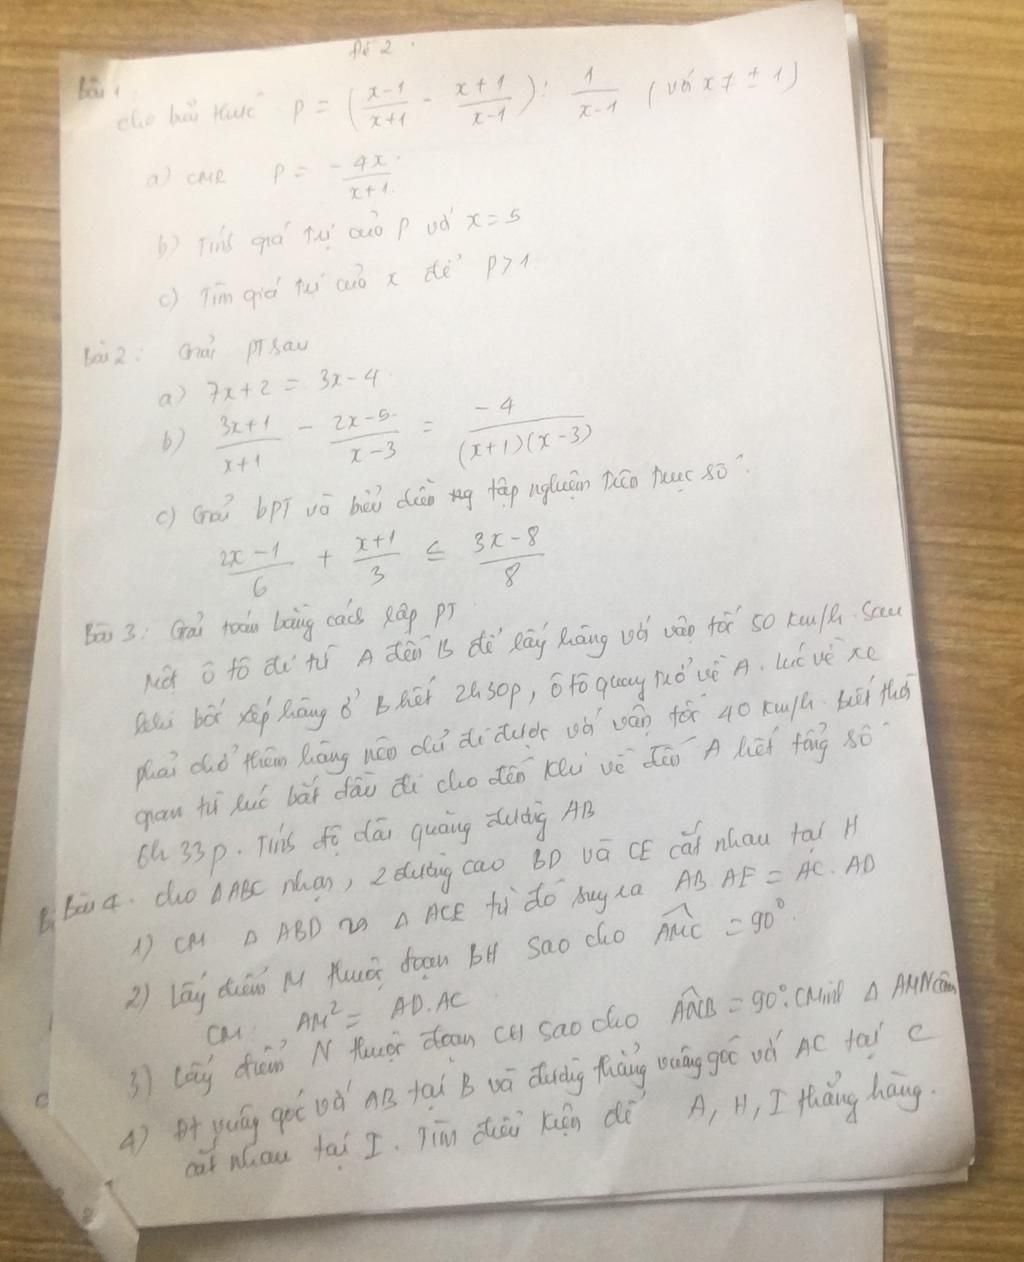 Đề 2.
Bài 1:
cho biểu thức P = (\frac{x-1}{x+1} - \frac{x+1}{x-1}) : \frac{1}{x-1} (với x ≠ ± 1)
a) CMR P = -\frac{4x}{x+1}
b) Tính giá trị của P với x = 5
c) Tìm giá trị của x để P > 1
Bài 2: Giải PT sau
a) 7x + 2 = 3x - 4
b) \frac{3x+1}{x+1} - \frac{2x-5}{x-3} = \frac{-4}{(x+1)(x-3)}
c) Giải bPT và biểu diễn tập nghiệm trên trục số.
\frac{2x-1}{6} + \frac{x+1}{3} ≤ \frac{3x-8}{8}
Bài 3: Giải toán bằng cách lập PT
Một ô tô đi từ A đến B để lấy hàng với vận tốc 50 km/h. Sau
khi bốc xếp hàng ở B hết 2h30p, ô tô quay trở về A. Lúc về xe
phải chở thêm hàng nên chỉ đi được với vận tốc 40 km/h. Biết thời
gian từ lúc bắt đầu đi cho đến khi về đến A hết tổng số
6h 33p. Tính độ dài quãng đường AB
Bài 4. cho ΔABC nhọn, 2 đường cao BD và CE cắt nhau tại H
1) CM Δ ABD ∽ Δ ACE từ đó suy ra AB.AE = AC.AD
2) Lấy điểm M thuộc đoạn BH sao cho \widehat{AMC} = 90°.
CM: AM² = AD.AC
3) Lấy điểm N thuộc đoạn CH sao cho \widehat{ANB} = 90°. CMinh Δ AMN cân
4) Đt vuông góc với AB tại B và đường thẳng vuông góc với AC tại C
cắt nhau tại I. Tìm điều kiện để A, H, I thẳng hàng.